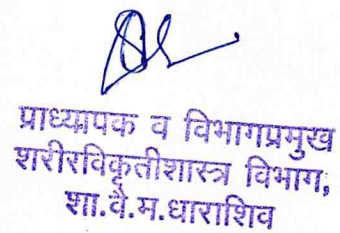 प्राध्यापक व विभागप्रमुख
शरीरविकृतीशास्त्र विभाग,
शा.वै.म.धाराशिव